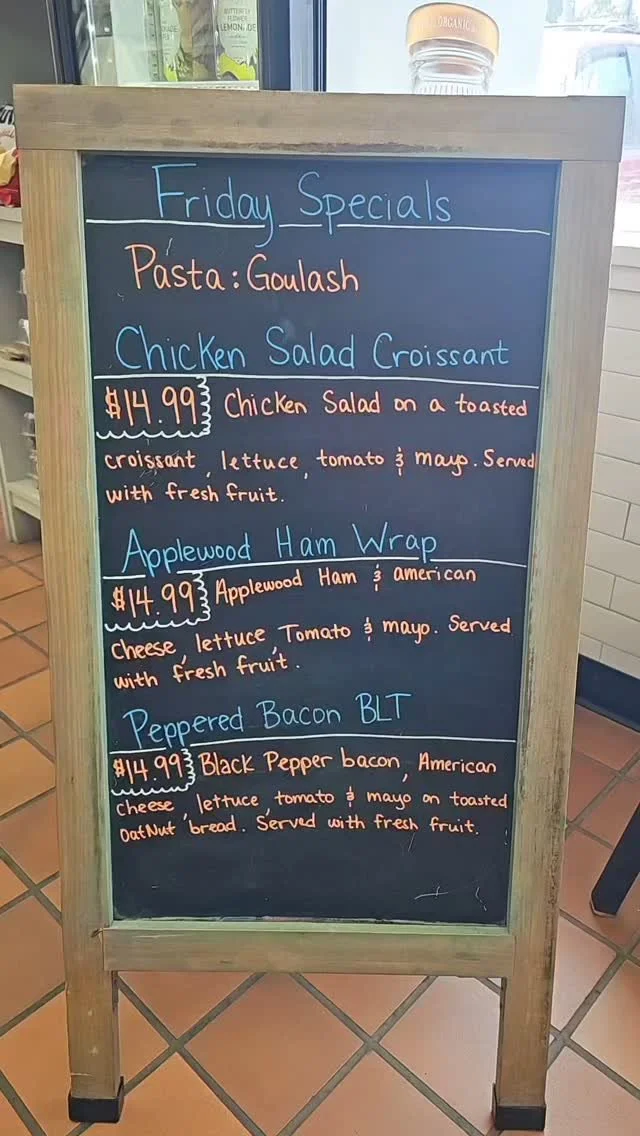 BUTTERFLY
FLOWER
LEMONADE
ORGANIC
Friday Specials
Pasta: Goulash
Chicken Salad Croissant
$14.99 Chicken Salad on a toasted
croissant, lettuce, tomato & mayo. Served
with fresh fruit.
Applewood Ham Wrap
$14.99 Applewood Ham & american
cheese, lettuce, Tomato & mayo. Served
with fresh fruit.
Peppered Bacon BLT
$14.99 Black Pepper bacon, American
cheese, lettuce, tomato & mayo on toasted
OatNut bread. Served with fresh fruit.